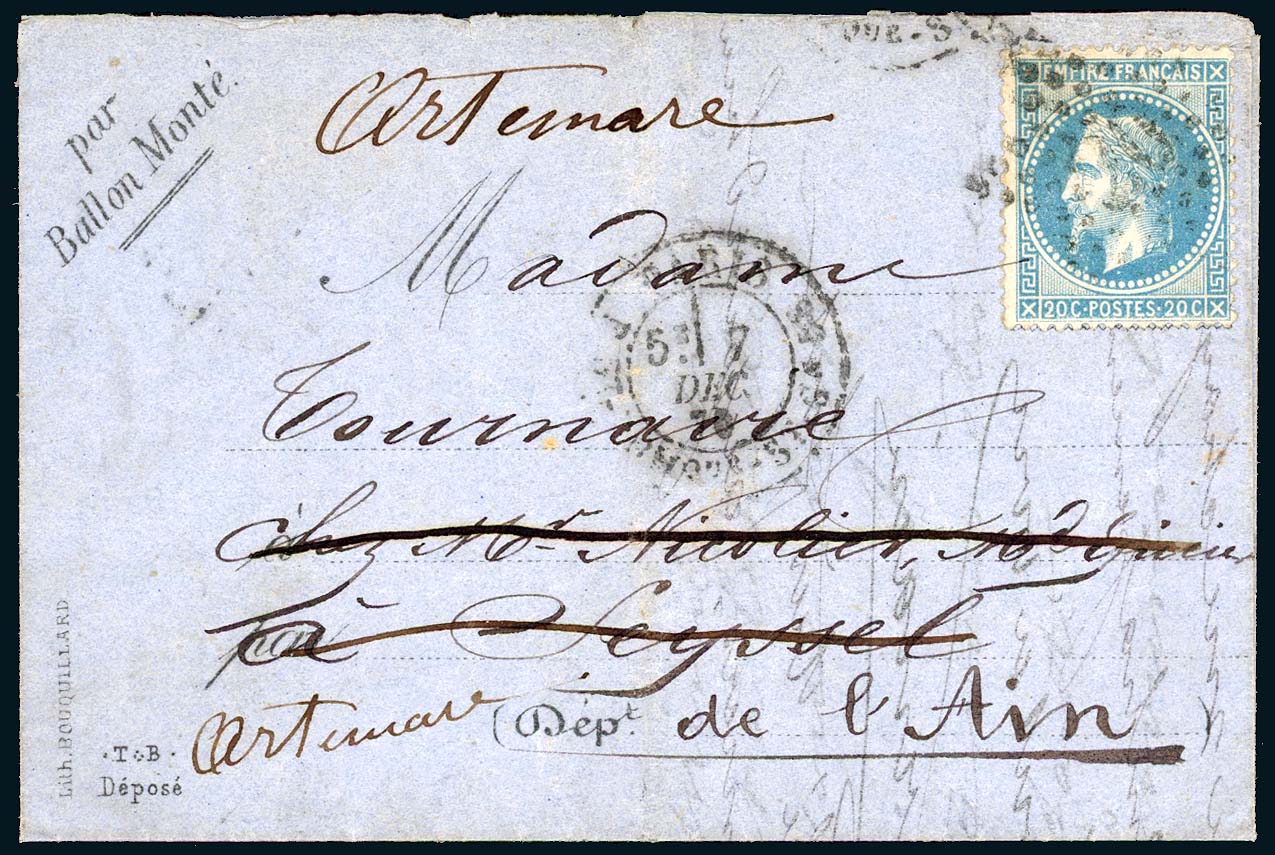 par
Ballon Monté.
Artemare
EMPIRE FRANÇAIS
20C·POSTES·20C
Madame
PARIS
5E 7
DEC.
Tournaire
chez Mr Nicolier, Md
à Seyssel
Artemare (Dépt. de l'Ain)
Lith. BOUQUILLARD
·T·B·
Déposé